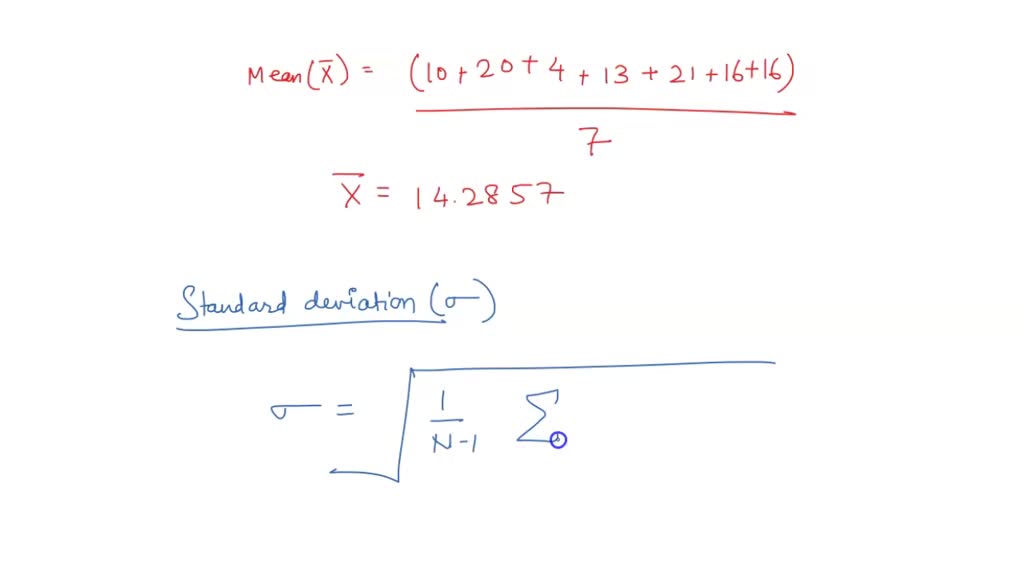 Mean(X̄) = (10 + 20 + 4 + 13 + 21 + 16 + 16)
7
X̄ = 14.2857
Standard deviation (σ)
σ = √ 1/N-1 Σ